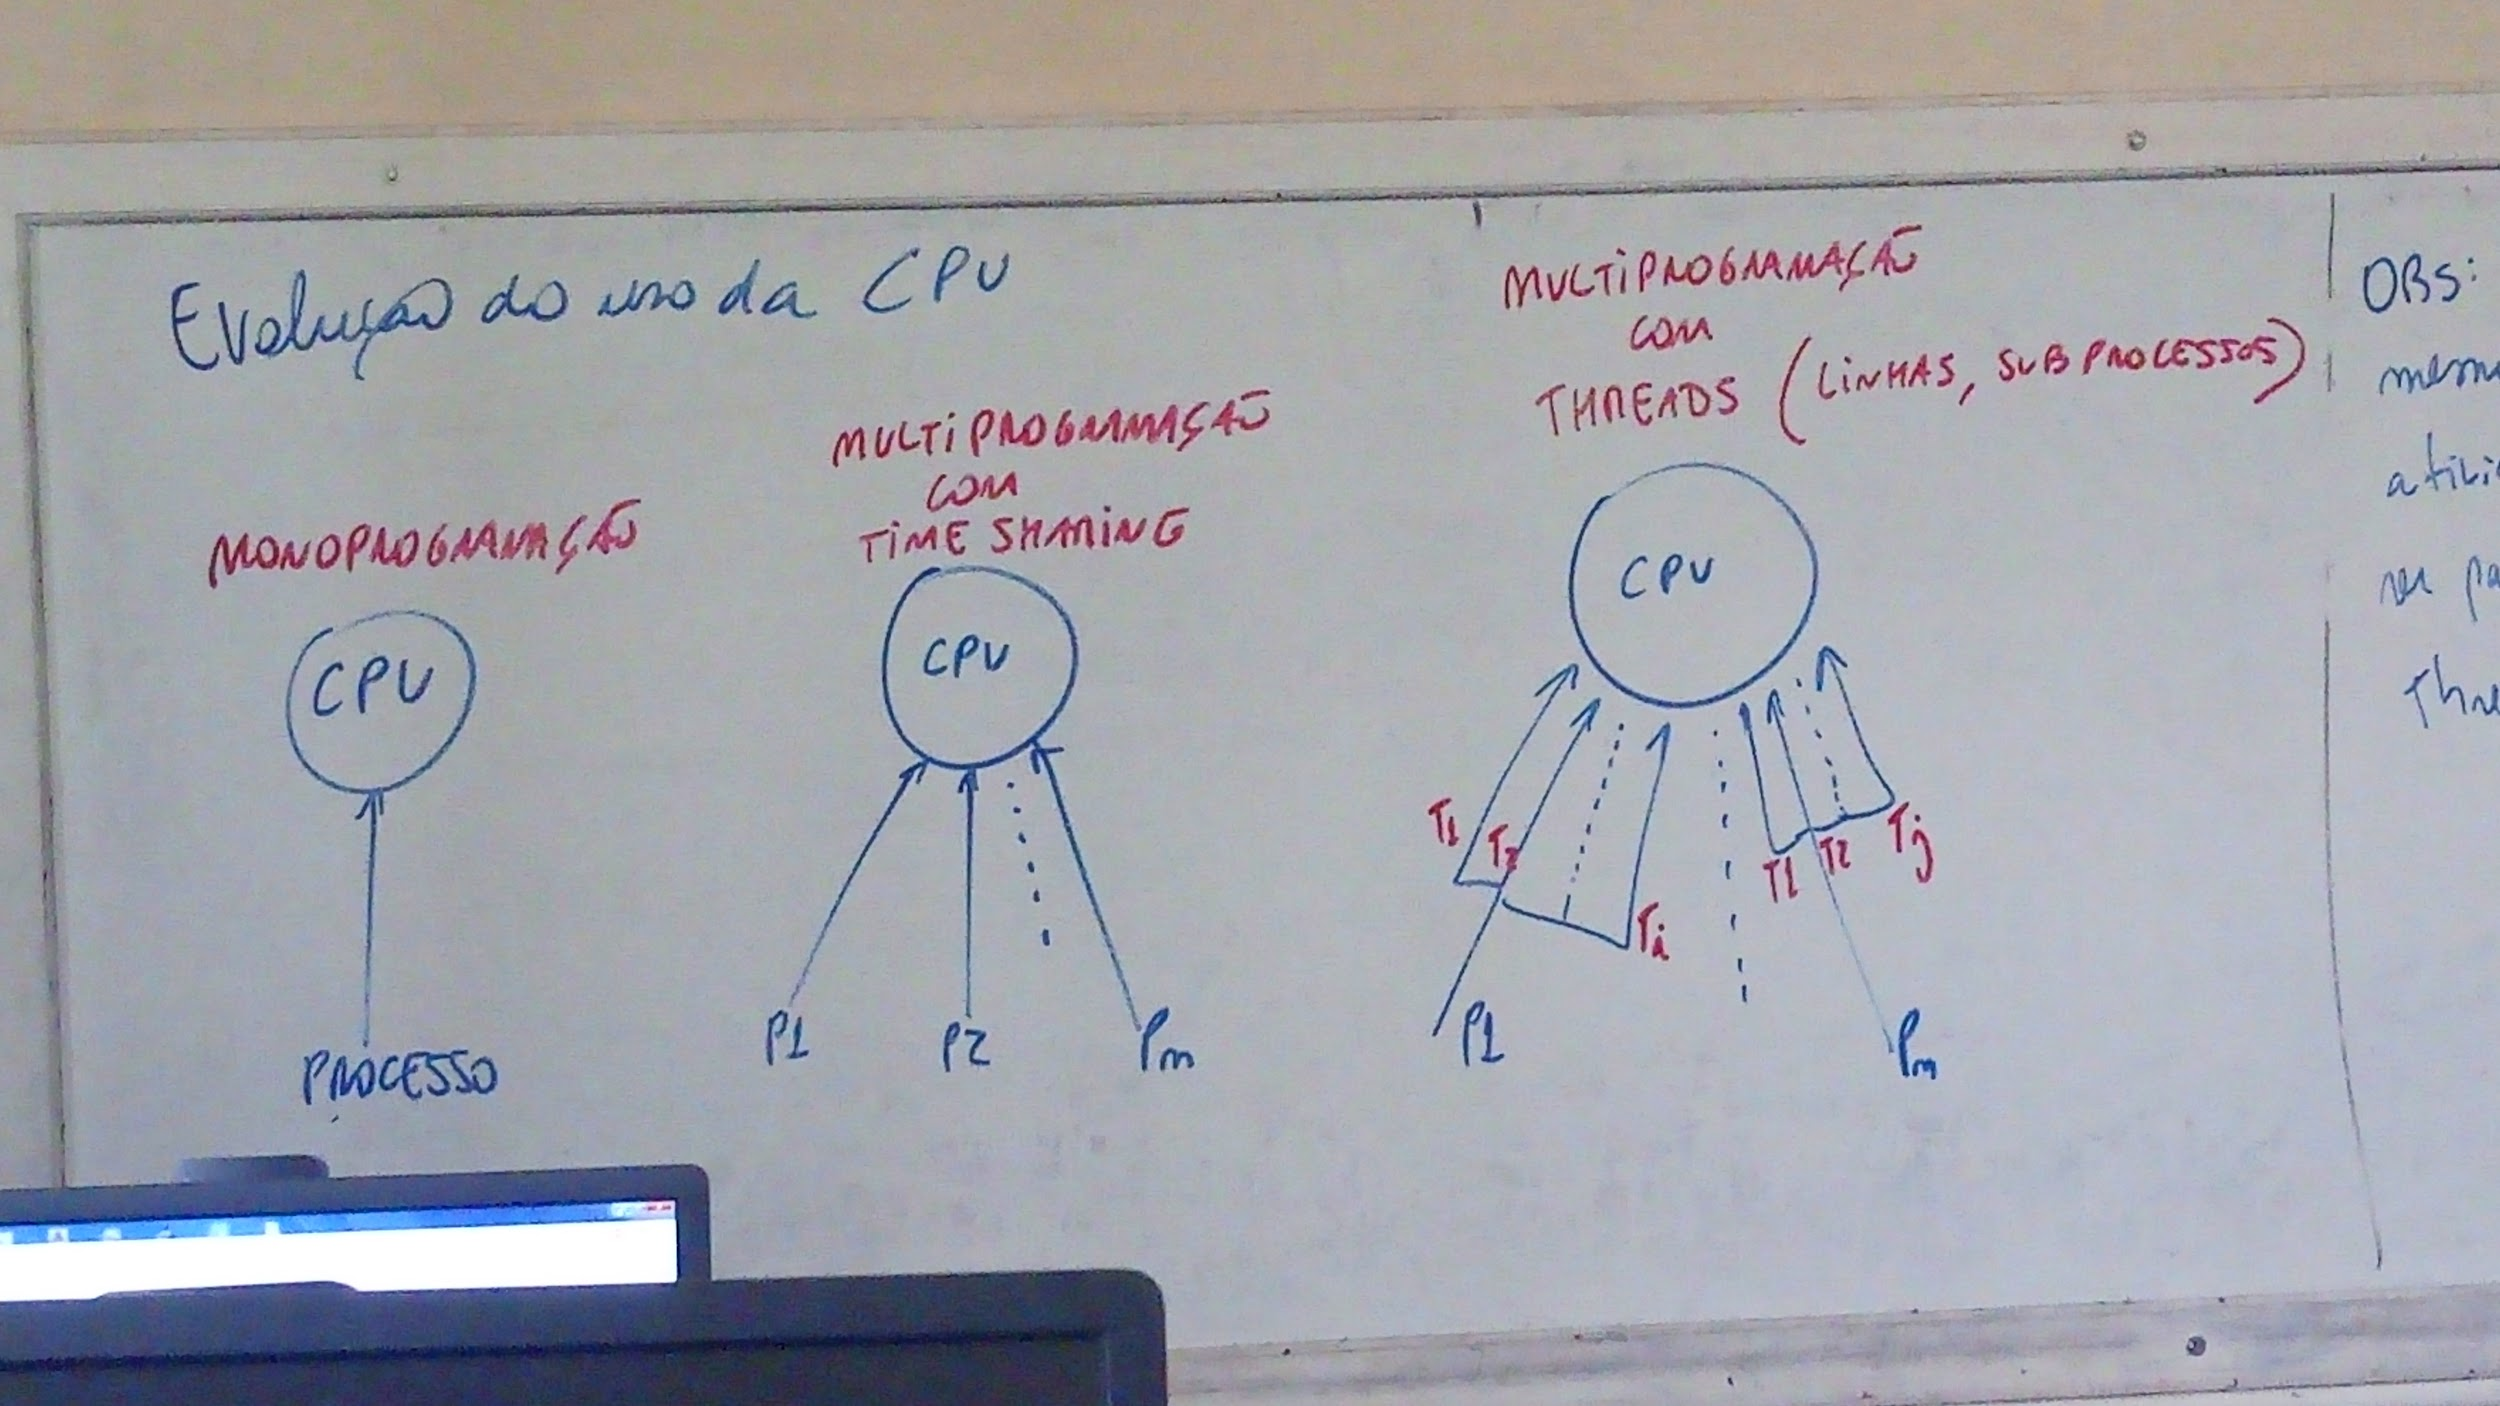 Evolução do uso da CPU
MONOPROGRAMAÇÃO
CPU
PROCESSO
MULTIPROGRAMAÇÃO
COM
TIME SHARING
CPU
P1 P2 Pm
MULTIPROGRAMAÇÃO
COM
THREADS (LINHAS, SUBPROCESSOS)
CPU
T1 T2 Ti T1 T2 Tj
P1 Pm
OBS: